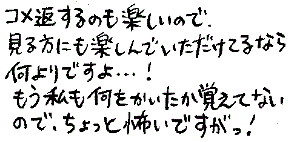 コメ返するのも楽しいので.
見る方にも楽しんでいただけてるなら
何よりですよ…!
もう私も何をかいたか覚えてない
ので、ちょっと怖いですがっ!